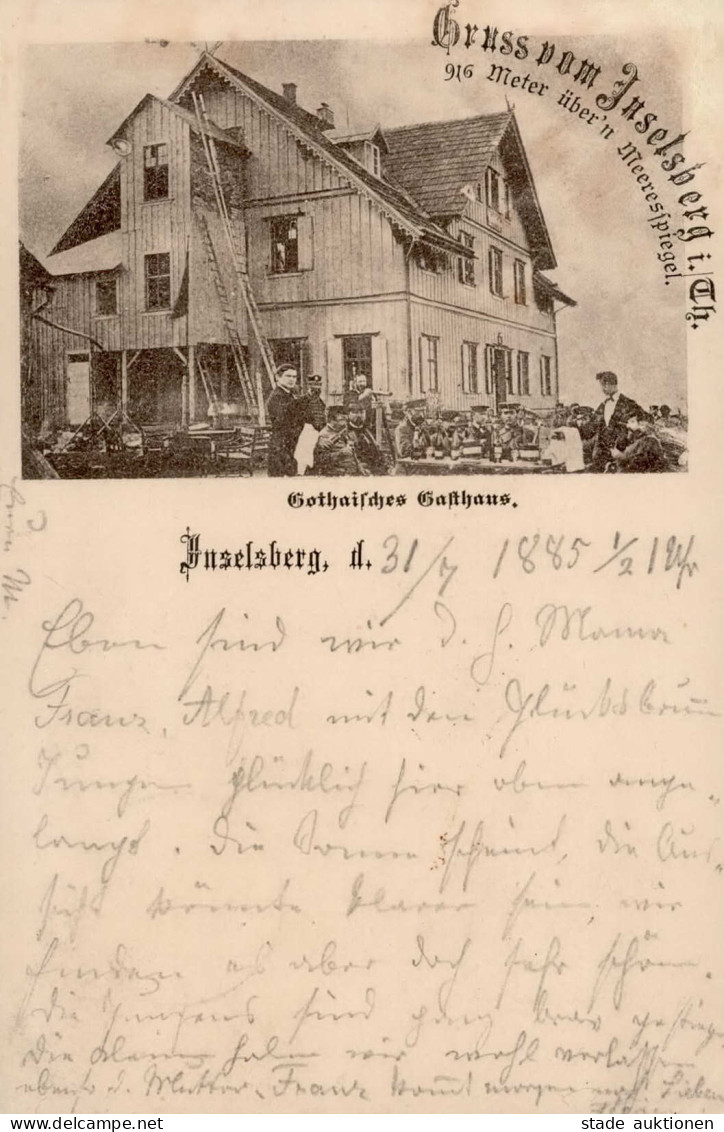 Gruss vom Inselsberg i. Th.
916 Meter über'n Meeresspiegel.
Gothaisches Gasthaus.
Inselsberg, d. 31/7 1885 1/2 1 Uhr
Eben sind wir d. h. Mama
Franz, Alfred mit den Glücksbrunn
Jungen glücklich hier oben ange-
langt. Die Sonne scheint, die Aus-
sicht könnte klarer sein wir
finden es aber doch sehr schön.
Die Jungens sind ganz brav gestiegen
Die kleine haben wir wohl verlassen
ebenso d. Mutter. Franz kommt morgen
stade auktionen